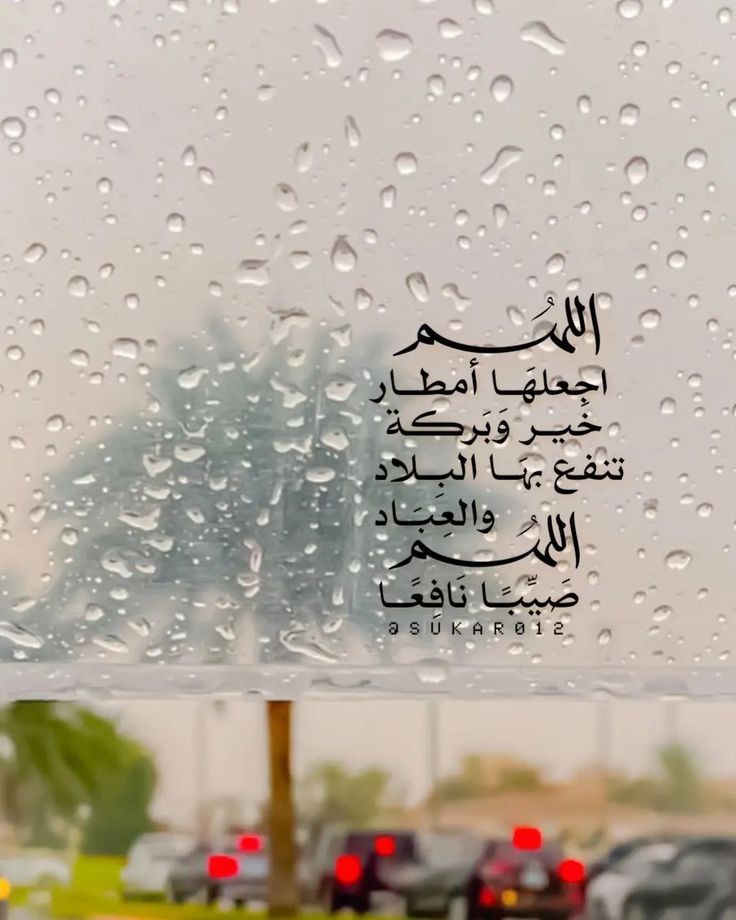 اللهم
اجعلهَا أمطار
خَيـر وَبَركـة
تنفع بهَـا البـلاد
والعِبَـاد
اللهُم
صَيِّبًـا نَافِعًـا
@SUKAR012